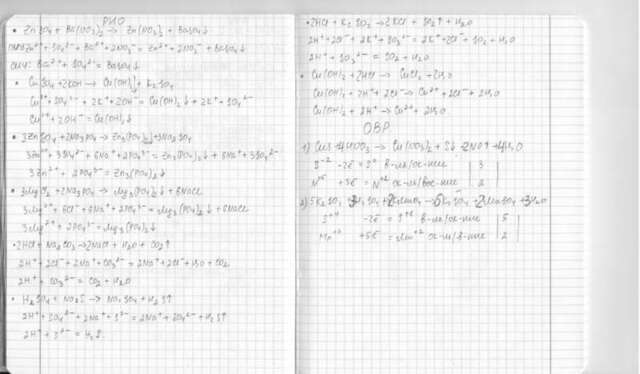 РИО
• ZnSO4 + Ba(NO3)2 → Zn(NO3)2 + BaSO4↓
Zn²⁺ + SO4²⁻ + Ba²⁺ + 2NO3⁻ = Zn²⁺ + 2NO3⁻ + BaSO4↓
Ba²⁺ + SO4²⁻ = BaSO4↓
• CuSO4 + 2KOH → Cu(OH)2↓ + K2SO4
Cu²⁺ + SO4²⁻ + 2K⁺ + 2OH⁻ = Cu(OH)2↓ + 2K⁺ + SO4²⁻
Cu²⁺ + 2OH⁻ = Cu(OH)2↓
• 3ZnSO4 + 2Na3PO4 → Zn3(PO4)2↓ + 3Na2SO4
3Zn²⁺ + 3SO4²⁻ + 6Na⁺ + 2PO4³⁻ = Zn3(PO4)2↓ + 6Na⁺ + 3SO4²⁻
3Zn²⁺ + 2PO4³⁻ = Zn3(PO4)2↓
• 3MgCl2 + 2Na3PO4 → Mg3(PO4)2↓ + 6NaCl
3Mg²⁺ + 6Cl⁻ + 6Na⁺ + 2PO4³⁻ = Mg3(PO4)2↓ + 6NaCl
3Mg²⁺ + 2PO4³⁻ = Mg3(PO4)2↓
• 2HCl + Na2CO3 → 2NaCl + H2O + CO2↑
2H⁺ + 2Cl⁻ + 2Na⁺ + CO3²⁻ = 2Na⁺ + 2Cl⁻ + H2O + CO2
2H⁺ + CO3²⁻ = CO2 + H2O
• H2SO4 + Na2S → Na2SO4 + H2S↑
2H⁺ + SO4²⁻ + 2Na⁺ + S²⁻ = 2Na⁺ + SO4²⁻ + H2S↑
2H⁺ + S²⁻ = H2S
• 2HCl + K2SO3 → 2KCl + SO2↑ + H2O
2H⁺ + 2Cl⁻ + 2K⁺ + SO3²⁻ = 2K⁺ + 2Cl⁻ + SO2 + H2O
2H⁺ + SO3²⁻ = SO2 + H2O
• Cu(OH)2 + 2HCl → CuCl2 + 2H2O
Cu(OH)2 + 2H⁺ + 2Cl⁻ → Cu²⁺ + 2Cl⁻ + 2H2O
Cu(OH)2 + 2H⁺ → Cu²⁺ + 2H2O
ОВР
1) CuS + HNO3 → Cu(NO3)2 + S↓ + 2NO↑ + 4H2O
S⁻² -2ē = S⁰ 3
N⁺⁵ +3ē = N⁺² 2
2) 5K2SO3
S⁺⁴ -2ē = S⁺⁶ 5
+5ē = Mn⁺² 2